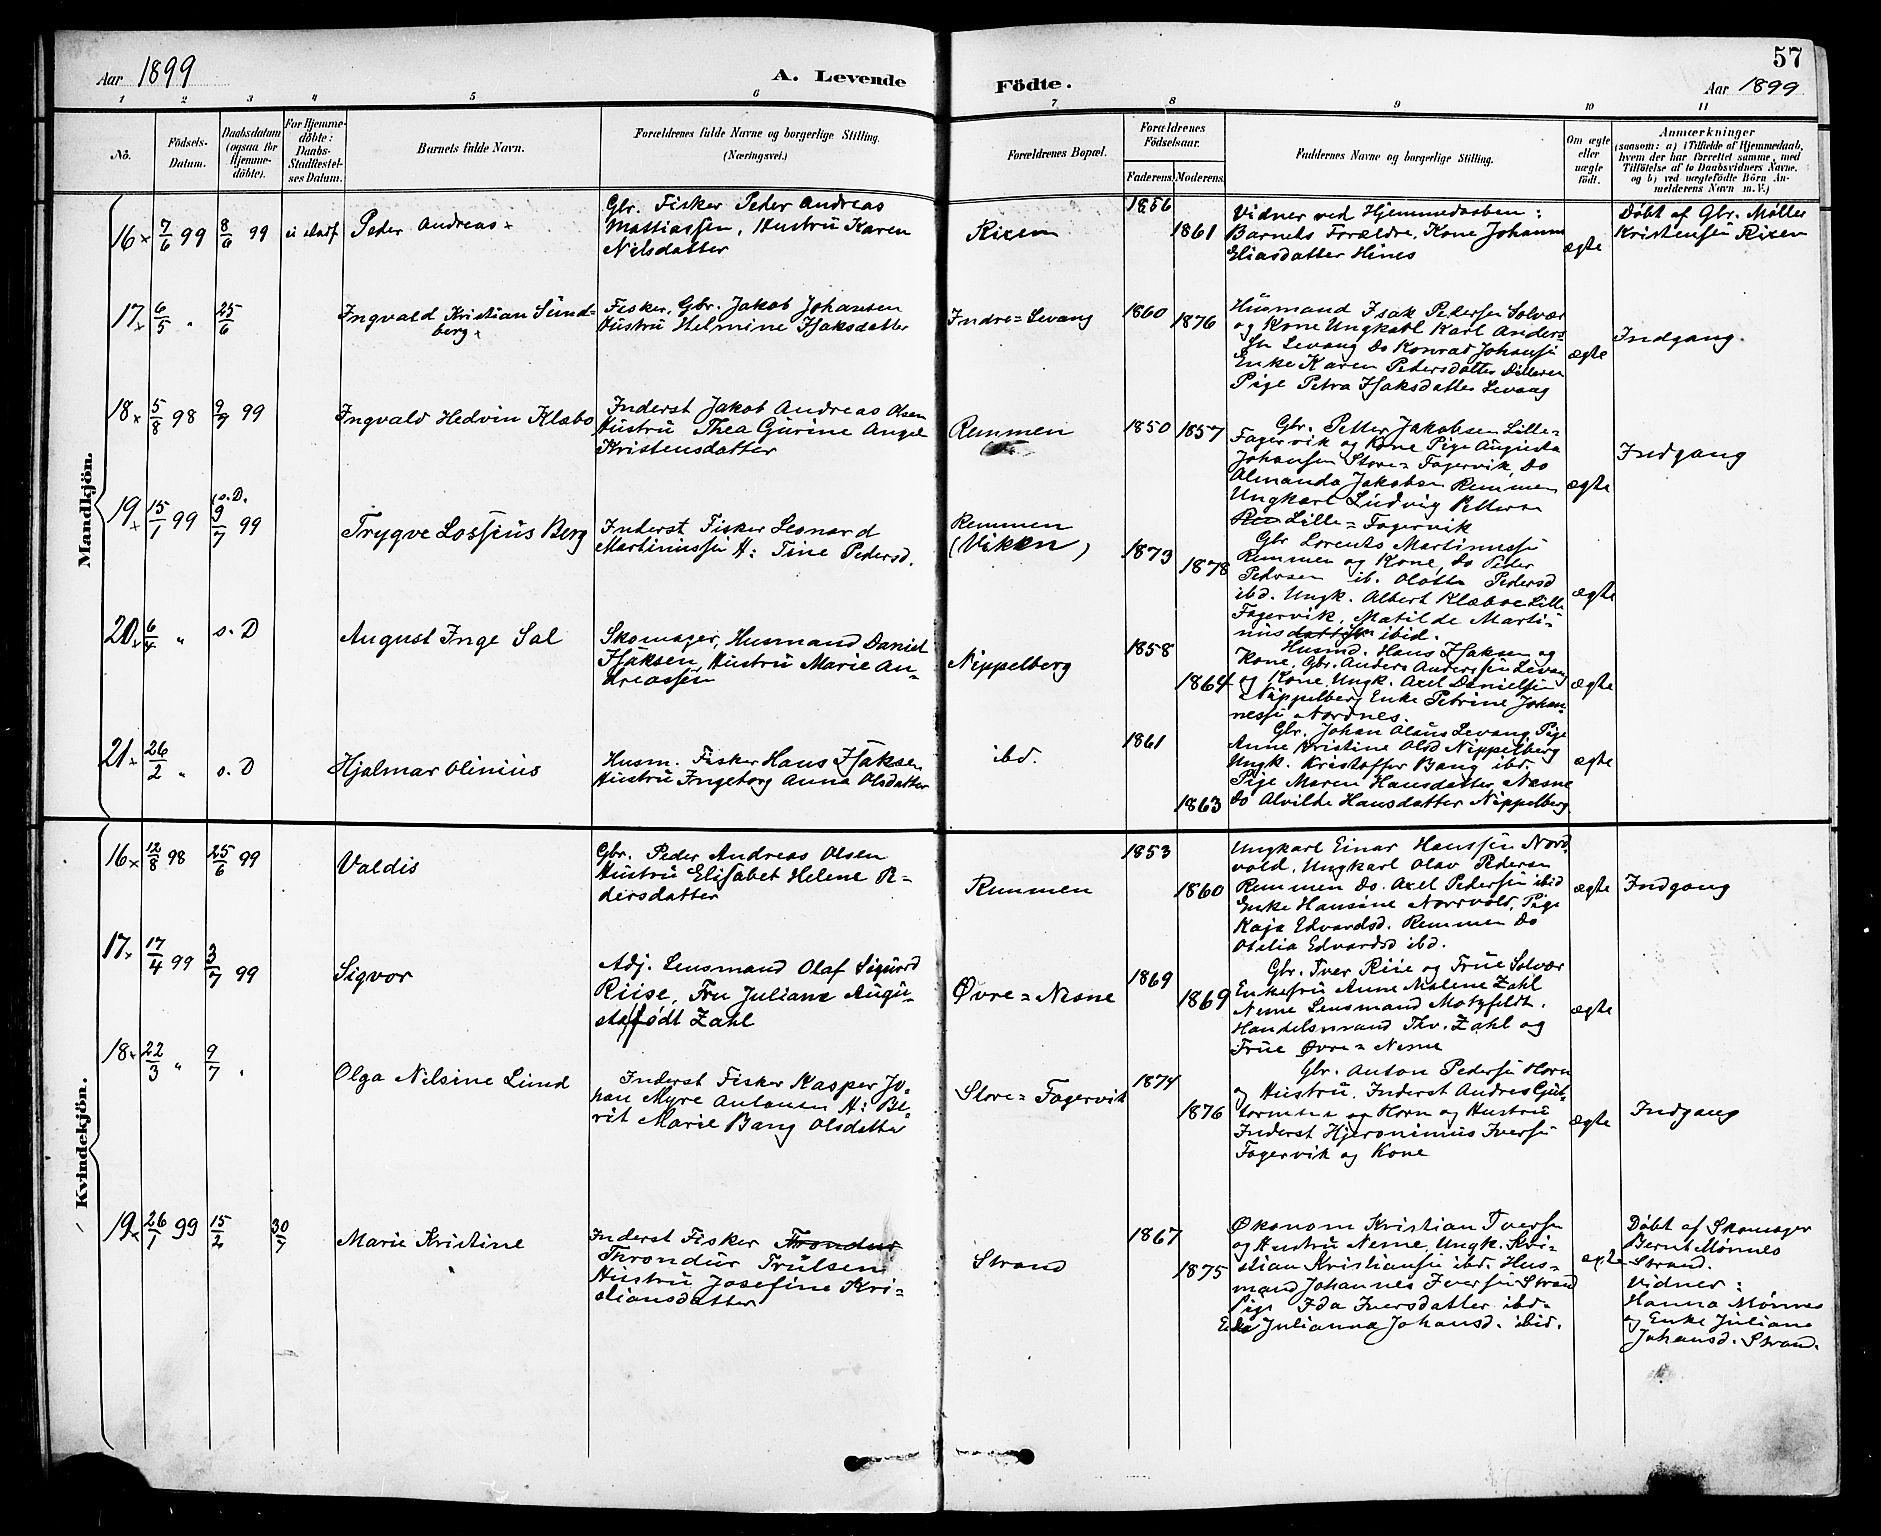 57
Aar 1899
A. Levende
Födte.
Aar 1899
1 2 3 4 5 6 7 8 9 10 11
No.
Födsels-
Datum.
Daabsdatum
(ogsaa for
Hjemme-
döbte).
For Hjemme-
döbte:
Daabs-
Stadfæstel-
ses Datum.
Barnets fulde Navn.
Forældrenes fulde Navne og borgerlige Stilling.
(Næringsvei.)
Forældrenes Bopæl.
Forældrenes
Födselsaar.
Faderens. Moderens.
Faddernes Navne og borgerlige Stilling.
Om ægte
eller
uægte
födt.
Anmærkninger
(saasom: a) i Tilfælde af Hjemmedaab,
hvem der har forrettet samme, med
Tilföielse af to Daabsvidners Navne,
og b) ved uægtefödte Börn An-
melderens Navn m. V.)
Mandkjön.
16 7/6 99 8/6 99 ei stadf
Peder Andreas
Gbr. Fisker Peder Andreas
Mattiassen, Hustru Karen
Nilsdatter
Rixen
1856
1861
Vidner ved Hjemmedaaben:
Barnets Forældre, Kone Johanna
Eliasdatter Hines
ægte
Döbt af Gbr. Møller
Kristensen Rixen
17 6/5 " 25/6
Ingvald Kristian Sund-
berg
Fisker, Gbr. Jakob Johansen
Hustru Helmine Isaksdatter
Indre=Levang
1860
1876
Husmand Isak Pedersen Solvær
og Kone Ungkarl Karl Anders-
sn Levang Do Konrad Johansen
Enke Karen Pedersdatter
Pige Petra Isaksdatter Levang
ægte
Indgang.
18 5/8 98 9/7 99
Ingvald Hedvin Klæbo
Inderst Jakob Andreas Olsen
Hustru Thea Gurine Angel
Kristensdatter
Remmen
1850 1857
Gbr. Petter Jakobsen Lille-
Fagervik og Kone Pige Augusta
Johansen Store=Fagervik, Do
Amanda Jakobsen Remmen
Ungkarl Ludvig Pettersen
Lille=Fagervik
ægte
Indgang
19 15/1 99 s.D. 9/7 99
Trygve Lossius Berg
Inderst Fisker Leonard
Martinussen H: Tine Pedersd.
Remmen
(Viken)
1873
1878
Gbr Lorents Martinussen
Remmen og Kone, Do Peder
Pedersen ib. Olotte Pedersd
ibd. Ungk. Albert Klæboe Lille
Fagervik, Matilde Marti-
nusdatter ibid.
ægte
20 6/4 " s. D
August Inge Sal
Skomager, Husmand Daniel
Isaksen, Hustru Marie An-
dreassen
Nippelberg
1858
1864
Husmd. Hans Isaksen og
Kone, Gbr. Anders Anderssen Levang
og Kone, Ungk. Axel Danielsen
Nippelberg Enke Petrine Johan-
nessen Nordnes.
ægte
21 26/2 " s. D
Hjalmar Olinius
Husm. Fisker Hans Isaksen
Hustru Ingeborg Anna Olsdatter
ibd.
1861
1863
Gbr. Johan Olaus Levang, Pige
Anne Kristine Olsd Nippelberg
Ungk. Kristoffer Bang ibd.
Pige Maren Hansdatter Næsne
Do Alvilde Hansdatter Nippelberg
ægte
Kvindekjön.
16 12/8 98 25/6 99
Valdis
Gbr. Peder Andreas Olsen
Hustru Elisabet Helene Pe-
dersdatter
Remmen
1853
1860
Ungkarl Einar Hanssen Nord
vold, Ungkarl Olav Pedersen
Remmen Do. Axel Pedersen ibid
Enke Hansine Nordvold, Pige
Kaja Edvardsd. Remmen Do
Otelia Edvardsd ibd.
ægte
Indgang
17 17/4 99 3/7 99
Sigvor
Adj. Lensmand Olaf Sigurd
Riise, Fru Juliane Augu-
sta født Zahl
Øvre=Nesne
1869
1869
Gbr. Iver Riise og Frue Solvær
Enkefru Anne Malene Zahl
Nesne Lensmand Motzfeldt.
Handelsmand Thv. Zahl og
Frue Øvre=Nesne
ægte
18 22/3 " 9/7 "
Olga Nelsine Lund
Inderst Fisker Kasper Jo-
han Myre Antonsen H: Be-
rit Marie Bang Olsdatter
Store=Fagervik
1874
1876
Gbr. Anton Pedersen Horn
og Hustru, Inderst Andreas Gut-
tormsen og Horn og Hustru
Inderst Hjeronimus Iversen
Fagervik og Kone
ægte
Indgang
19 26/1 99 15/2 30/7
Marie Kristine
Inderst Fisker Trondur
Throndur Trulsen
Hustru Josefine Kri-
stiansdatter
Strand
1867
1875
Økonom Kristian Iversen
og Hustru Nesne, Ungk. Kri-
stian Kristiansen ibd. Hus-
mand Johannes Iversen Strand
Pige Ida Iversdatter ibd.
Enke Julianna Johansd. ibid.
ægte
Döbt af Skomager
Bernt Mønnes
Strand.
Vidner:
Hanna Mønnes
og Enke Juliane
Johansd. Strand.